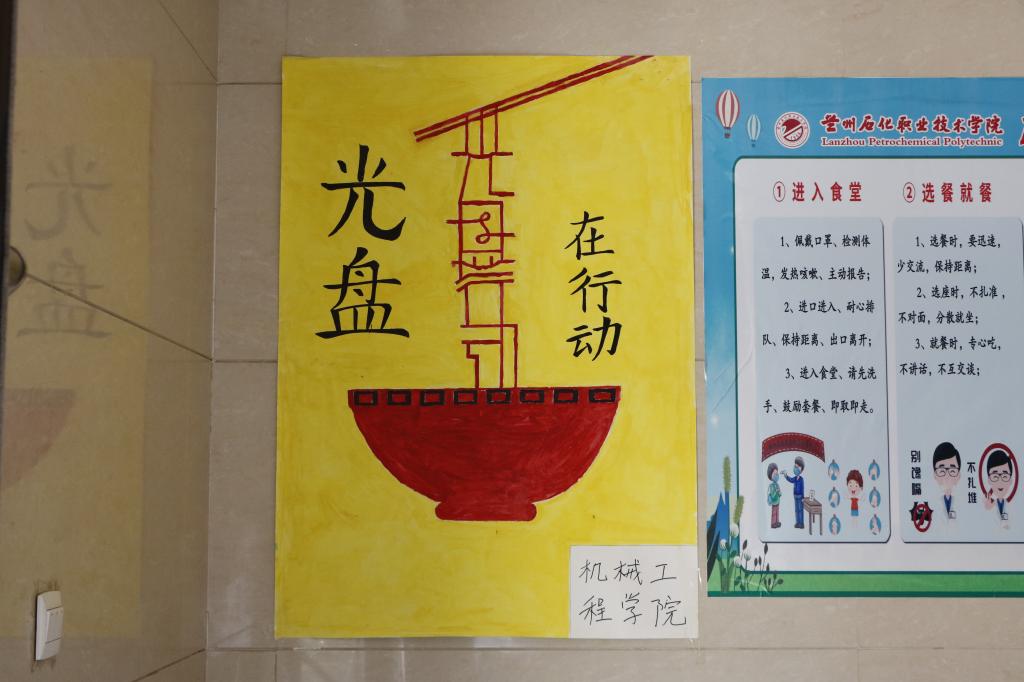 光盘
在行动
机械工
程学院
兰州石化职业技术学院
Lanzhou Petrochemical Polytechnic
①进入食堂
1、佩戴口罩、检测体
温，发热咳嗽、主动报告；
2、进口进入、耐心排
队、保持距离、出口离开；
3、进入食堂、请先洗
手、鼓励套餐、即取即走。
②选餐就餐
1、选餐时，要迅速，
少交流，保持距离；
2、选座时，不扎准，
不对面，分散就坐；
3、就餐时，专心吃，
不讲话，不互交谈；
别馋嘴
不扎堆